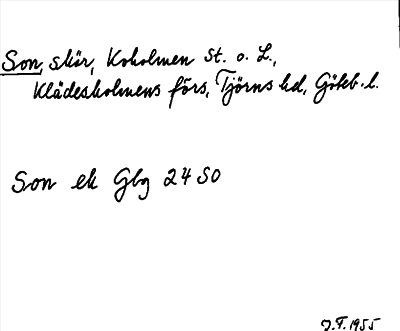 Son, skär, Koholmen St. o. L.,
Klädesholmens förs, Tjörns hd, Göteb. l.
Son ek Gbg 24 SO
J.F. 1955